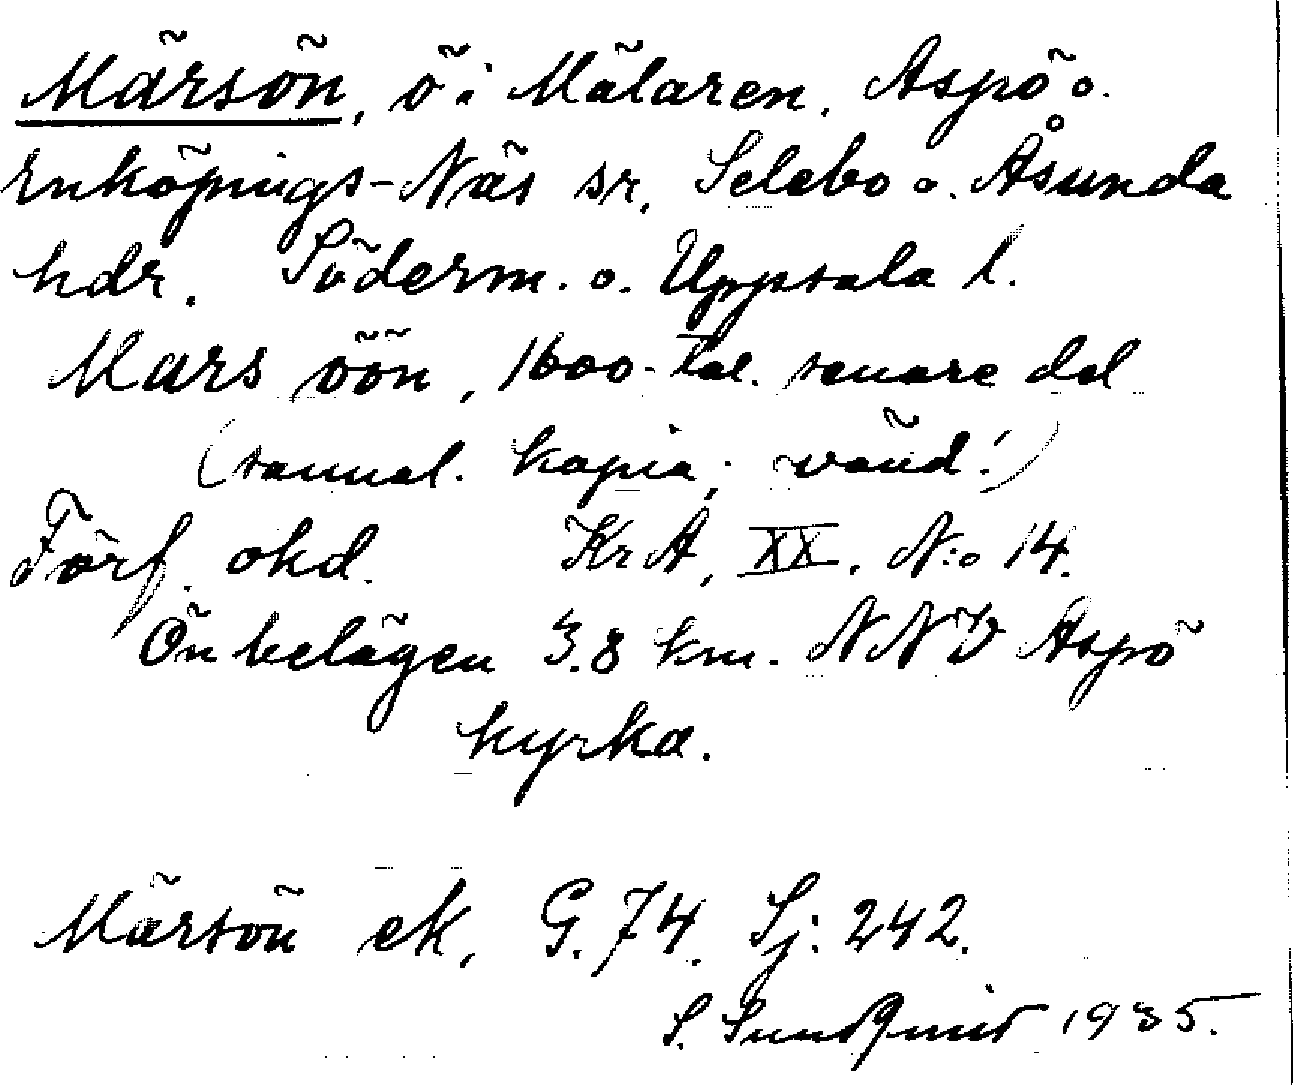 Märsön, ö i Mälaren, Aspö o.
Enköpings-Näs sr, Selebo o. Åsunda
hdr. Söderm. o. Uppsala l.
Mars öön, 1600-tal. senare del
(sannol. kopia; vänd!)
Förf. okd. KrA, XX. N:o 14.
Ön belägen 3.8 km. NNV Aspö
kyrka.
Märsön ek, G. 74. Sj: 242.
S. Sundqvist 1935.